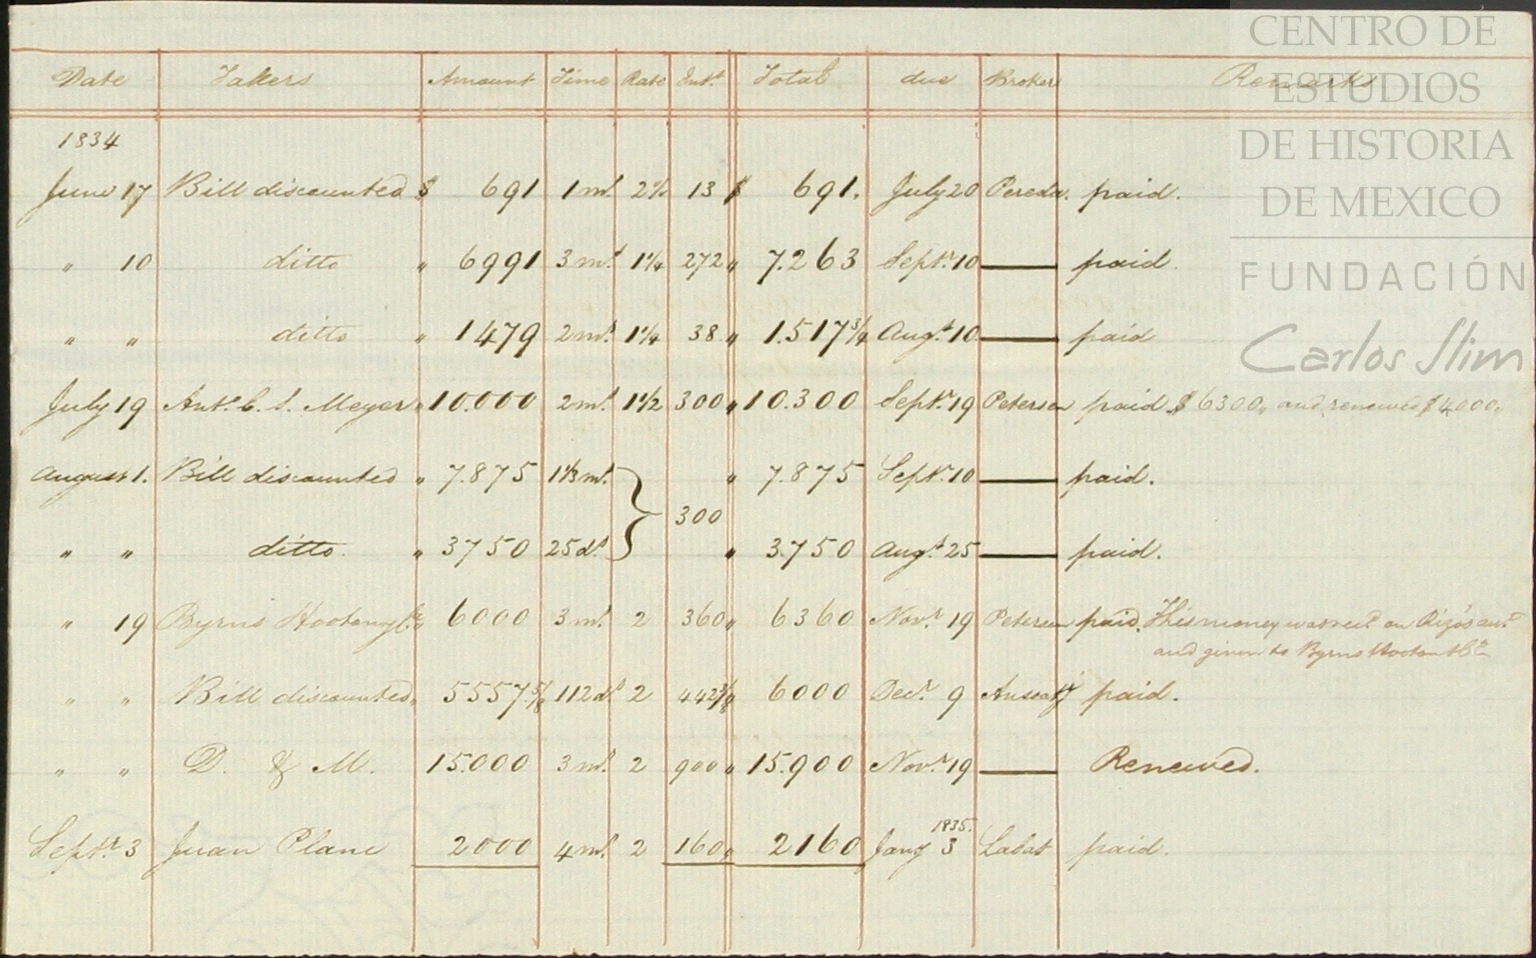 CENTRO DE
ESTUDIOS
DE HISTORIA
DE MEXICO
FUNDACIÓN
Carlos Slim
Date Takers Amount Time Rate Intt. Total due Broker Remarks
1834
June 17 Bill discounted $ 691 1 mt. 2% 13 $ 691. July 20 Pereda. paid.
" 10 ditto " 6991 3 mt. 1¼ 272 " 7.263 Septr. 10 — paid.
" " ditto " 1479 2 mt. 1¼ 38 " 1.517¾ Augt. 10 — paid
July 19 Ant. C. S. Meyer " 10.000 2 mt. 1½ 300 " 10.300 Septr. 19 Petersen paid $6300,, and renewed $4000,,
August 1. Bill discounted " 7.875 1⅓ mt. " 7.875 Septr. 10 — paid.
300
" " ditto. " 3750 25 ds " 3.750 Augt. 25 — paid.
" 19 Byrns Hooton & Co. " 6000 3 mt. 2 360 " 6360 Novr. 19 Petersen paid. This money was recd. on Rigo's acct.
and given to Byrns Hooton & Co
" " Bill discounted " 5557⅝ 112 ds 2 442⅜ " 6000 Decr. 9 paid.
" " D. & M. 15.000 3 mt. 2 900 " 15.900 Novr. 19 — Renewed.
1835.
Septr. 3 Juan Plane 2000 4 mt. 2 160 " 2160 Jany 3 Labat paid.